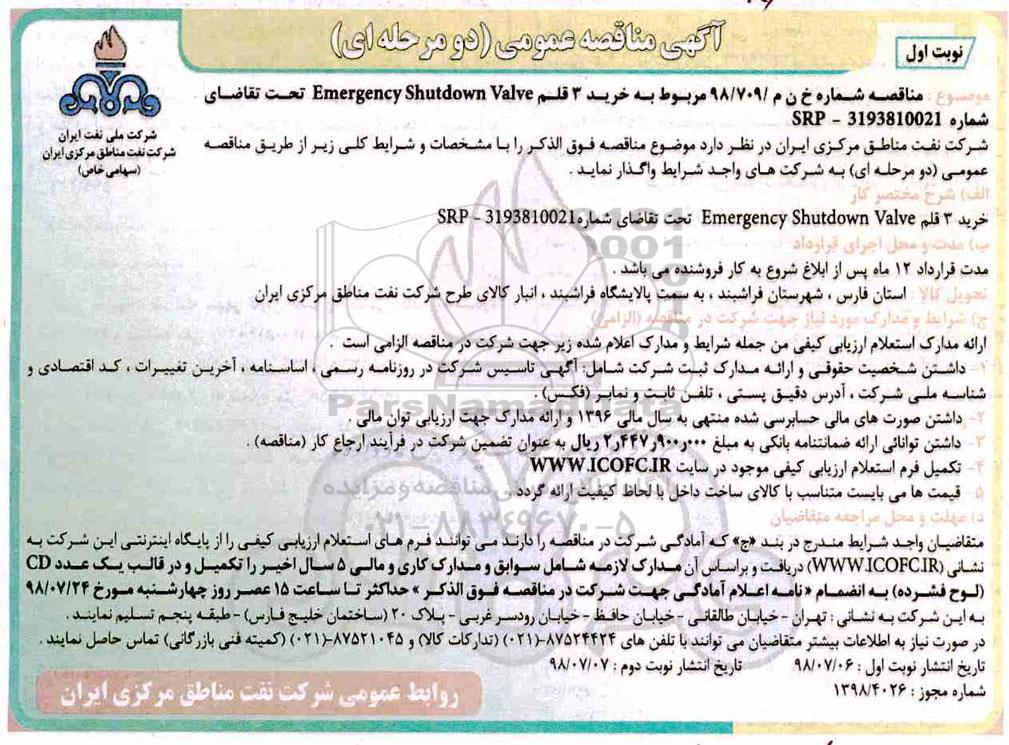 آگهی مناقصه عمومی (دو مرحله ای)
نوبت اول
شرکت ملی نفت ایران
شرکت نفت مناطق مرکزی ایران
(سهامی خاص)
موضوع : مناقصه شماره خ ن م /۹۸/۷۰۹ مربوط به خرید ۳ قلم Emergency Shutdown Valve تحت تقاضای
شماره SRP – 3193810021
شرکت نفت مناطق مرکزی ایران در نظر دارد موضوع مناقصه فوق الذکر را با مشخصات و شرایط کلی زیر از طریق مناقصه
عمومی (دو مرحله ای) به شرکت های واجد شرایط واگذار نماید .
الف) شرح مختصر کار
خرید ۳ قلم Emergency Shutdown Valve تحت تقاضای شماره SRP – 3193810021
ب) مدت و محل اجرای قرارداد
مدت قرارداد ۱۲ ماه پس از ابلاغ شروع به کار فروشنده می باشد .
تحویل کالا : استان فارس ، شهرستان فراشبند ، به سمت پالایشگاه فراشبند ، انبار کالای طرح شرکت نفت مناطق مرکزی ایران
ج) شرایط و مدارک مورد نیاز جهت شرکت در مناقصه (الزامی)
ارائه مدارک استعلام ارزیابی کیفی من جمله شرایط و مدارک اعلام شده زیر جهت شرکت در مناقصه الزامی است .
۱- داشتن شخصیت حقوقی و ارائه مدارک ثبت شرکت شامل: آگهی تاسیس شرکت در روزنامه رسمی ، اساسنامه ، آخرین تغییرات ، کد اقتصادی و
شناسه ملی شرکت ، آدرس دقیق پستی ، تلفن ثابت و نمابر (فکس) .
۲- داشتن صورت های مالی حسابرسی شده منتهی به سال مالی ۱۳۹۶ و ارائه مدارک جهت ارزیابی توان مالی
۳- داشتن توانائی ارائه ضمانتنامه بانکی به مبلغ ۲٫۴۴۷٫۹۰۰٫۰۰۰ ریال به عنوان تضمین شرکت در فرآیند ارجاع کار (مناقصه) .
۴- تکمیل فرم استعلام ارزیابی کیفی موجود در سایت WWW.ICOFC.IR
۵- قیمت ها می بایست متناسب با کالای ساخت داخل با لحاظ کیفیت ارائه گردد .
د) مهلت و محل مراجعه متقاضیان
متقاضیان واجد شرایط مندرج در بند «ج» که آمادگی شرکت در مناقصه را دارند می توانند فرم های استعلام ارزیابی کیفی را از پایگاه اینترنتی این شرکت به
نشانی (WWW.ICOFC.IR) دریافت و براساس آن مدارک لازمه شامل سوابق و مدارک کاری و مالی ۵ سال اخیر را تکمیل و در قالب یک عدد CD
(لوح فشرده) به انضمام «نامه اعلام آمادگی جهت شرکت در مناقصه فوق الذکر » حداکثر تا ساعت ۱۵ عصر روز چهارشنبه مورخ ۹۸/۰۷/۲۴
به این شرکت به نشانی : تهران - خیابان طالقانی - خیابان حافظ - خیابان رودسر غربی - پلاک ۲۰ (ساختمان خلیج فارس) - طبقه پنجم تسلیم نمایند .
در صورت نیاز به اطلاعات بیشتر متقاضیان می توانند با تلفن های ۸۷۵۲۴۴۲۴-(۰۲۱) (تدارکات کالا) و ۸۷۵۲۱۰۴۵-(۰۲۱) (کمیته فنی بازرگانی) تماس حاصل نمایند .
تاریخ انتشار نوبت اول : ۹۸/۰۷/۰۶ تاریخ انتشار نوبت دوم : ۹۸/۰۷/۰۷
شماره مجوز : ۱۳۹۸/۴۰۲۶
روابط عمومی شرکت نفت مناطق مرکزی ایران
ParsNamadData
۰۲۱-۸۸۳۴۹۶۷۰-۵